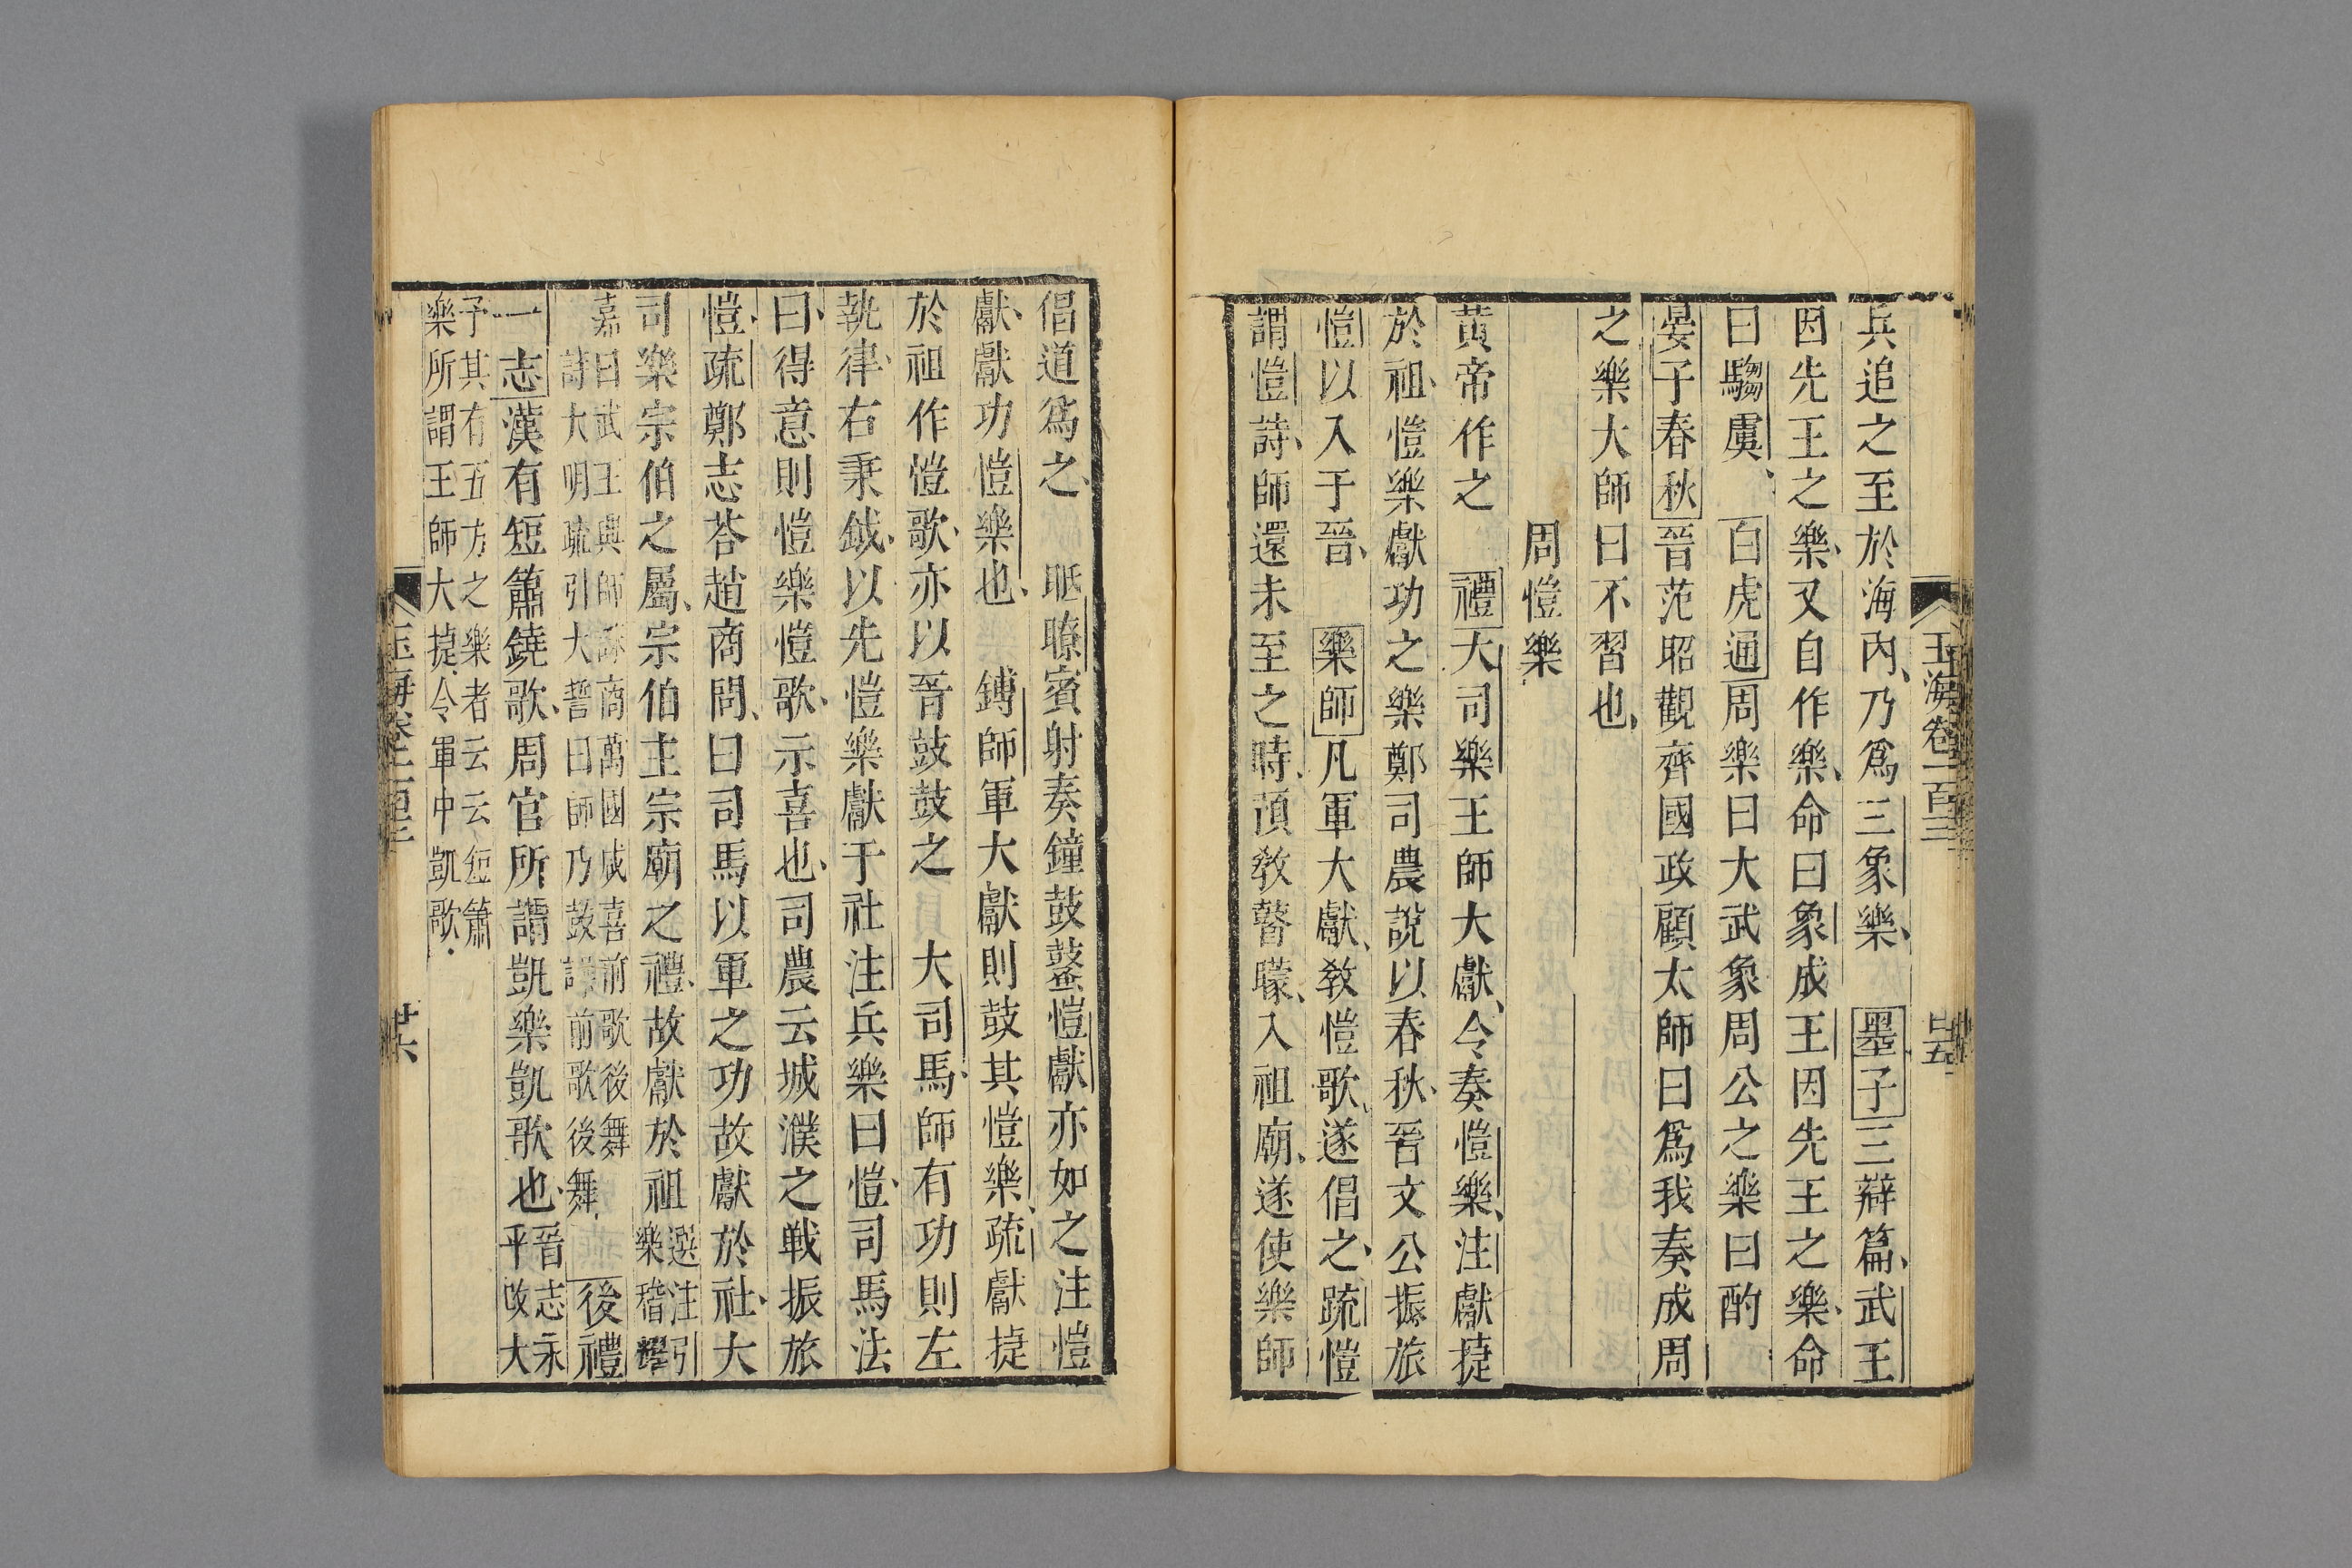 兵追之至於海內乃爲三象樂 墨子三辯篇武王
因先王之樂又自作樂命曰象成王因先王之樂命
曰騶虞 白虎通周樂曰大武象周公之樂曰酌
晏子春秋晉范昭觀齊國政顧太師曰爲我奏成周
之樂大師曰不習也
周愷樂
黃帝作之 禮大司樂王師大獻令奏愷樂注獻捷
於祖愷樂獻功之樂鄭司農說以春秋晉文公振旅
愷以入于晉 樂師凡軍大獻教愷歌遂倡之疏愷
謂愷詩師還未至之時預教瞽矇入祖廟遂使樂師
倡道爲之 眂瞭賓射奏鐘鼓鼜愷獻亦如之注愷
獻獻功愷樂也 鎛師軍大獻則鼓其愷樂疏獻捷
於祖作愷歌亦以晉鼓鼓之 大司馬師有功則左
執律右秉鉞以先愷樂獻于社注兵樂曰愷司馬法
曰得意則愷樂愷歌示喜也司農云城濮之戰振旅
愷疏鄭志荅趙商問曰司馬以軍之功故獻於社大
司樂宗伯之屬宗伯主宗廟之禮故獻於祖
選注引
樂稽耀
嘉曰武王興師誅商萬國咸喜前歌後舞
詩大明疏引大誓曰師乃鼓譟前歌後舞
後禮
一志漢有短簫鐃歌周官所謂凱樂凱歌也
晉志永
平改大
予其有五方之樂者云云短簫
樂所謂王師大捷令軍中凱歌
玉海卷一百三